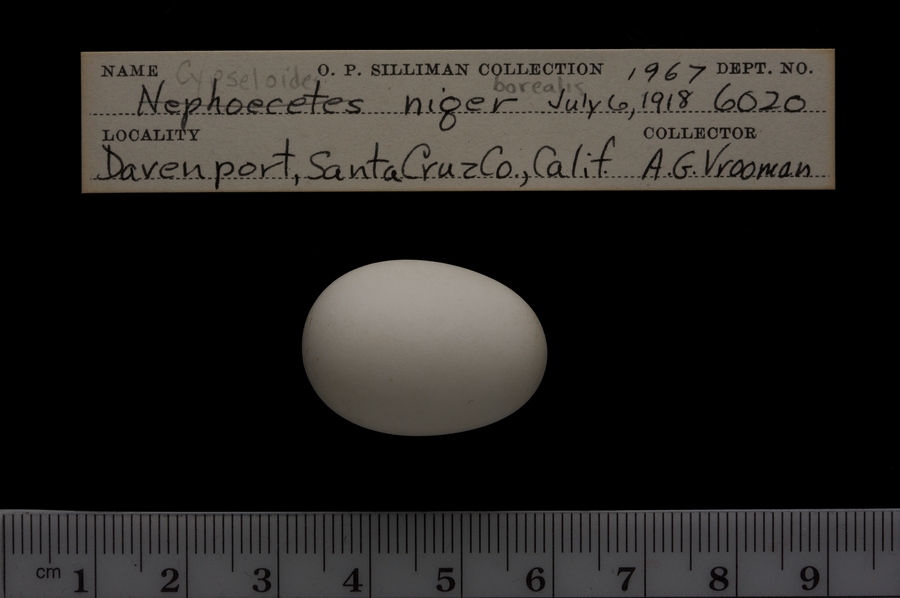 NAME Cypseloides O. P. SILLIMAN COLLECTION 1967 DEPT. NO.
Nephoecetes niger borealis July 6, 1918 6020
LOCALITY COLLECTOR
Davenport, Santa Cruz Co., Calif. A.G. Vrooman
cm 1 2 3 4 5 6 7 8 9